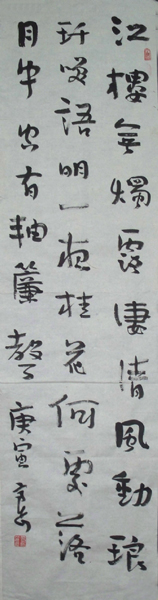 江樓無燭露凄清風動琅
玕咲語明一夜桂花何處落
月中空有軸簾聲 庚寅